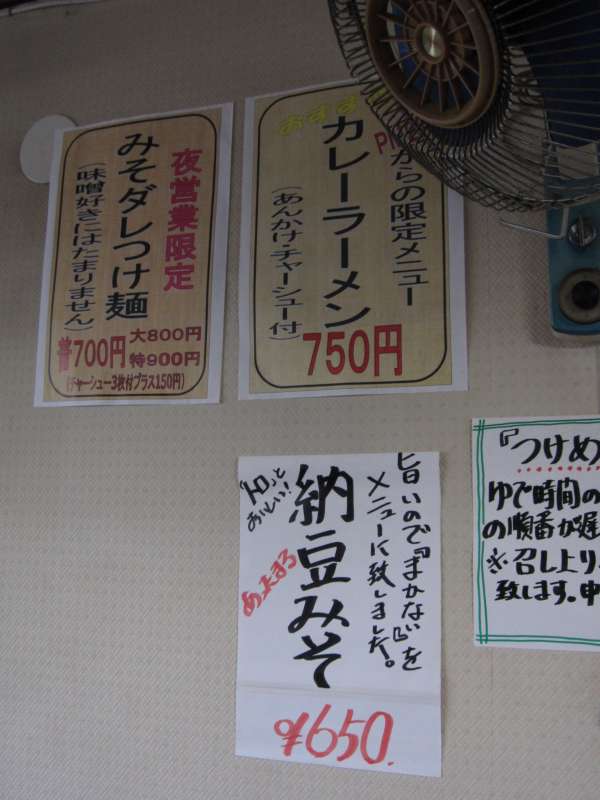 夜営業限定
みそダレつけ麺
(味噌好きにはたまりません)
普700円
大800円
特900円
(チャーシュー3枚付プラス150円)
おすす
PM
からの限定メニュー
カレーラーメン
(あんかけ・チャーシュー付)
750円
旨いので『まかない』を
メニューに致しました。
納豆みそ
あったまる
¥650.
『つけめ
ゆで時間の
の順番が遅
※召し上り
致します。申